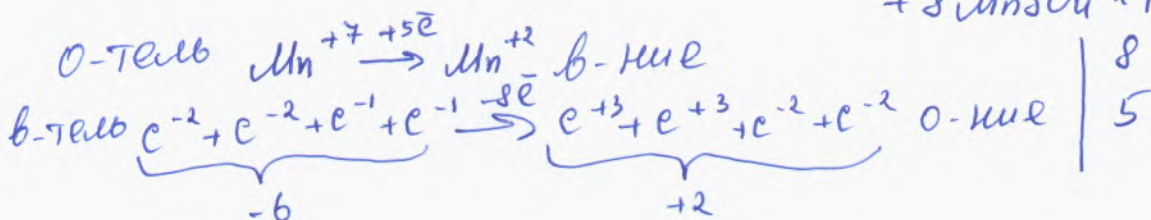 +8MnSO4 +
о-тель Mn⁺⁷ +5ē → Mn⁺² в-ние | 8
в-тель C⁻² + C⁻² + C⁻¹ + C⁻¹ -8ē → C⁺³ + C⁺³ + C⁻² + C⁻² о-ние | 5
-6 +2